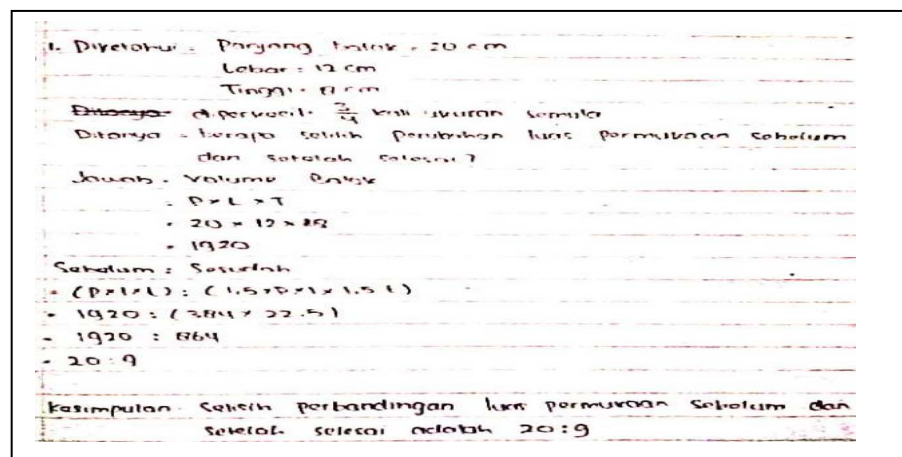 1. Diketahui : Panjang balok = 20 cm
Lebar = 12 cm
Tinggi = 8 cm
Ditanya diperkecil 3/4 kali ukuran semula
Ditanya = berapa selisih perubahan luas permukaan sebelum
dan setelah selesai?
Jawab = Volume Balok
= P × L × T
= 20 × 12 × 8
= 1920
Sebelum : Sesudah
= (P×l×t) : (1.5×P×l×1.5 t)
= 1920 : (384 × 22.5)
= 1920 : 864
= 20:9
Kesimpulan Selisih perbandingan luas permukaan sebelum dan
setelah selesai adalah 20:9